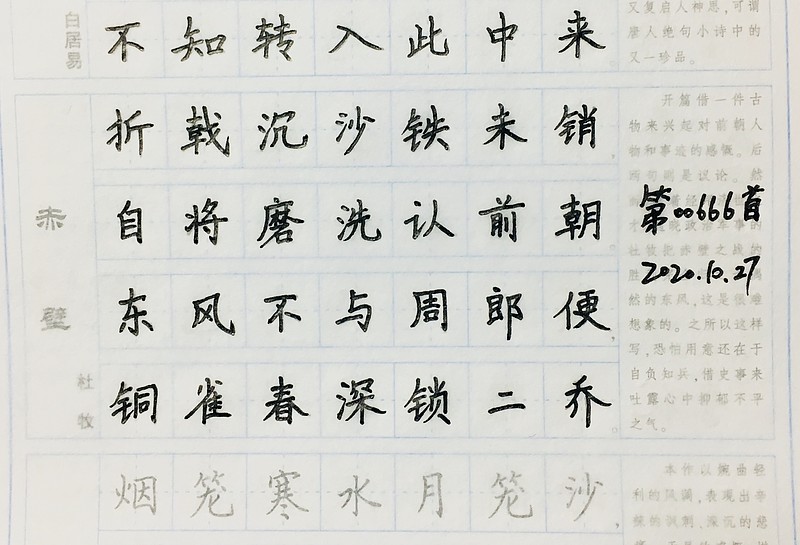 白居易
不知转入此中来
又复启人神思,可谓
唐人绝句小诗中的
又一珍品。
赤壁
杜牧
折戟沉沙铁未销,
自将磨洗认前朝。
东风不与周郎便,
铜雀春深锁二乔。
开篇借一件古
物来兴起对前朝人
物和事迹的感慨。后
两句则是议论。然
第00666首
2020.10.27
杜牧把赤壁之战的
然的东风,这是很难
想象的。之所以这样
写,恐怕用意还在于
自负知兵,借史事来
吐露心中抑郁不平
之气。
烟笼寒水月笼沙,
本作以婉曲轻
利的风调,表现出辛
辣的讽刺,深沉的悲